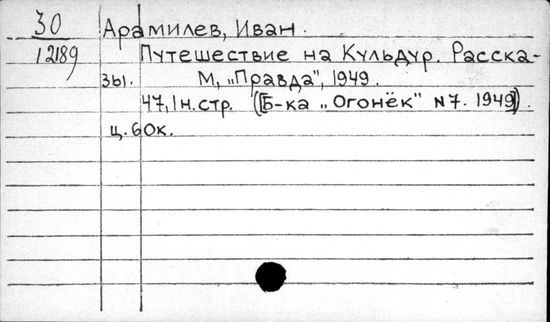 30 Арамилев, Иван.
12189 Путешествие на Кульдур. Расска-
зы. М, „Правда", 1949.
47, 1 н.стр. ([Б-ка „Огонёк" №7. 1949]).
ц. 60к.